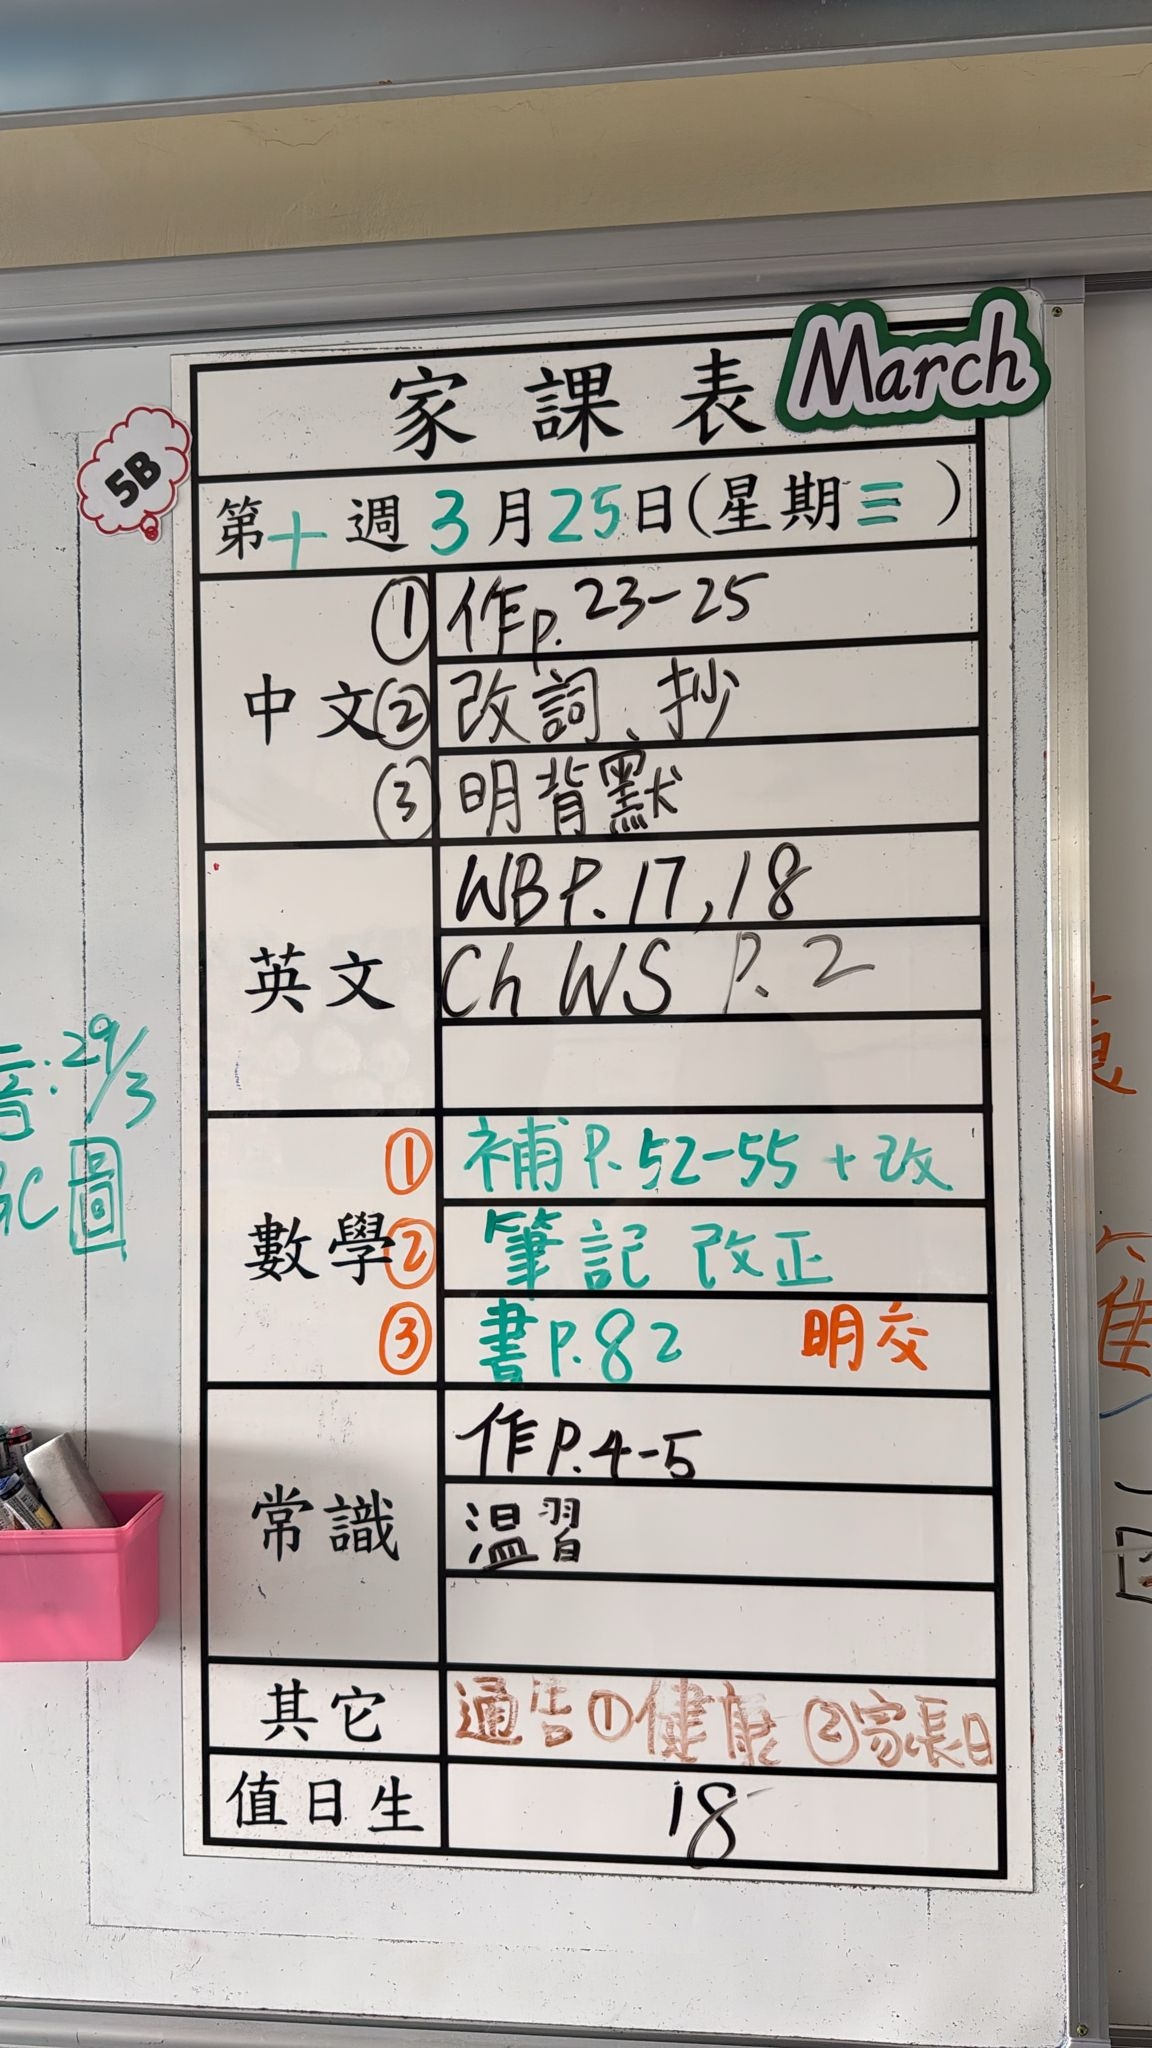 March
家課表
5B
第十週 3月25日(星期三)
中文
① 作p.23-25
② 改詞、抄
③ 明背默
英文
WB P.17,18
Ch WS P.2
數學
① 補P.52-55+改
② 筆記 改正
③ 書P.82 明交
常識
作P.4-5
溫習
其它
通告①健康 ②家長日
值日生
18
音:29/3
圖